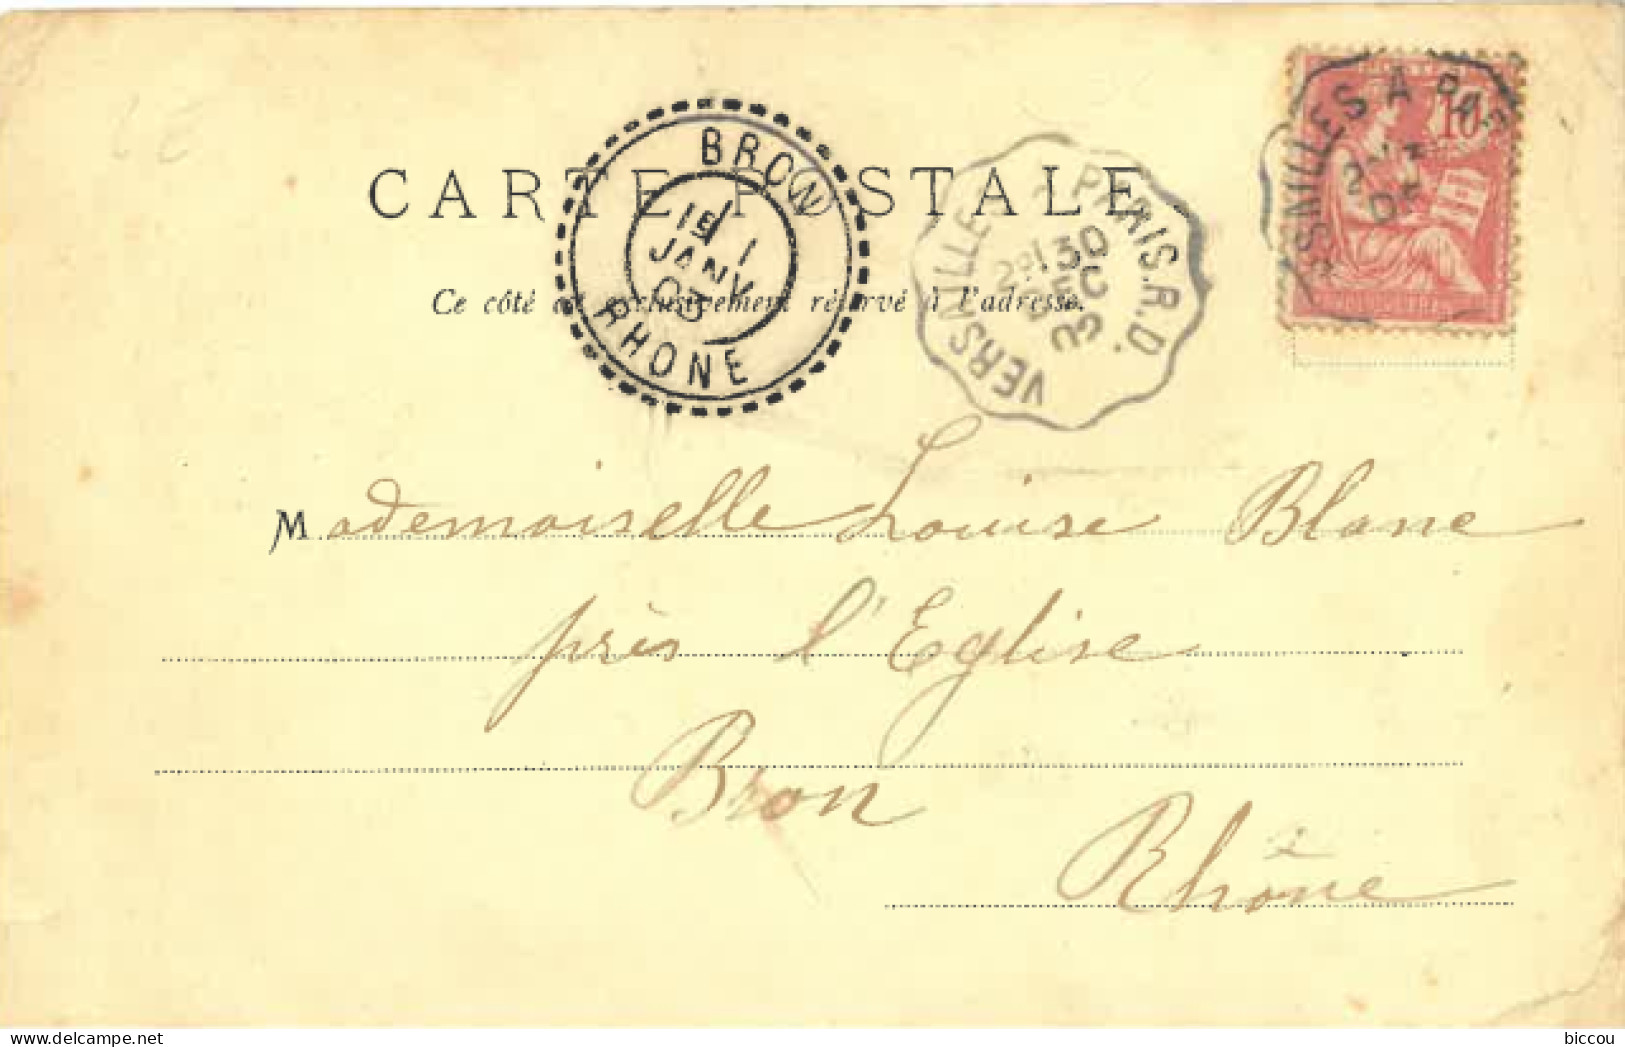 CARTE POSTALE
Ce côté est exclusivement réservé à l'adresse.
BRON
1
JANV
03
RHONE
VERSAILLES À PARIS.R.D.
2º
30
DEC
VERSAILLES À
10
Mademoiselle Louise Blanc
près l'Eglise
Bron
Rhône
biccou